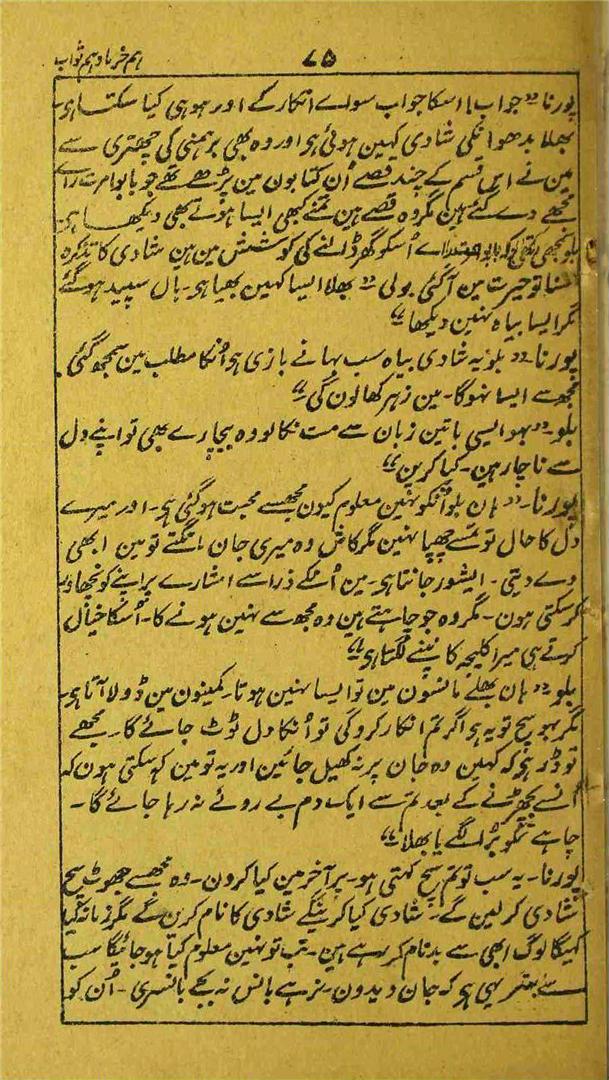 ۷۵ ہم خرما و ہم ثواب
پورنا۔ "جواب! اسکا جواب سواے انکار کے اور ہو ہی کیا سکتا ہی۔
بھلا بدھوا نکی شادی کہین ہوئی ہی اور وہ بھی برہمنی کی چھتری سے
مین نے اس قسم کے چند قصے اُن کتابون مین پڑھے تھے جو بابو امرت راے
مجھے دے گئے ہین مگر وہ قصے ہین تمنے کبھی ایسا ہوتے بھی دیکھا ہی"
بلو سمجھی تھی کہ بابو امرت راے اُسکو گھر ڈالنے کی کوشش مین ہین شادی کا تذکرہ
سنا تو حیرت مین آ گئی بولی "بھلا ایسا کہین بھیا ہی۔ بال سپید ہو گئے
مگر ایسا بیاہ نہین دیکھا"
پورنا۔ "بلو یہ شادی بیاہ سب بہانے بازی ہی اُنکا مطلب مین سمجھ گئی۔
مجھسے ایسا نہوگا۔ مین زہر کھا لون گی"
بلو۔ "بہو ایسی باتین زبان سے مت نکالو وہ بیچارے بھی تو اپنے دل
سے ناچار ہین۔ کیا کرین"
پورنا۔ "ہان بلو اُنکو نہین معلوم کیون مجھسے محبت ہو گئی ہی۔ اور میرے
دل کا حال تو تمسے چھپا نہین مگر کاش وہ میری جان مانگتے تو مین ابھی
دے دیتی۔ ایشور جانتا ہی۔ مین اُنکے ذرا سے اشارے پر اپنے کو نچھاور
کر سکتی ہون۔ مگر وہ جو چاہتے ہین وہ مجھ سے نہین ہونے کا۔ اُسکا خیال
کرتے ہی میرا کلیجہ کانپنے لگتا ہی"
بلو۔ "ہان بھلے مانسون مین تو ایسا نہین ہوتا۔ کمینون مین ڈولا آتا ہی۔
مگر بہو سچ تو یہ ہی اگر تم انکار کرو گی تو اُنکا دل ٹوٹ جائے گا۔ مجھے
تو ڈر ہی کہ کہین وہ جان پر نہ کھیل جائین اور یہ تو مین کہہ سکتی ہون کہ
اُنسے بچھڑنے کے بعد تم سے ایک دم بے روئے نہ رہا جائے گا۔
چاہے تمکو بُرا لگے یا بھلا"
پورنا۔ یہ سب تو تم سچ کہتی ہو۔ پر آخر مین کیا کرون۔ وہ مجھسے جھوٹ سچ
شادی کر لین گے۔ شادی کیا کرینگے شادی کا نام کرین گے مگر زمانہ کیا
کہیگا لوگ ابھی سے بدنام کر رہے ہین۔ تب تو نہین معلوم کیا ہو جائیگا سب
سے بہتر یہی ہی کہ جان دیدون۔ نہ رہے بانس نہ بجے بانسری۔ اُن کو